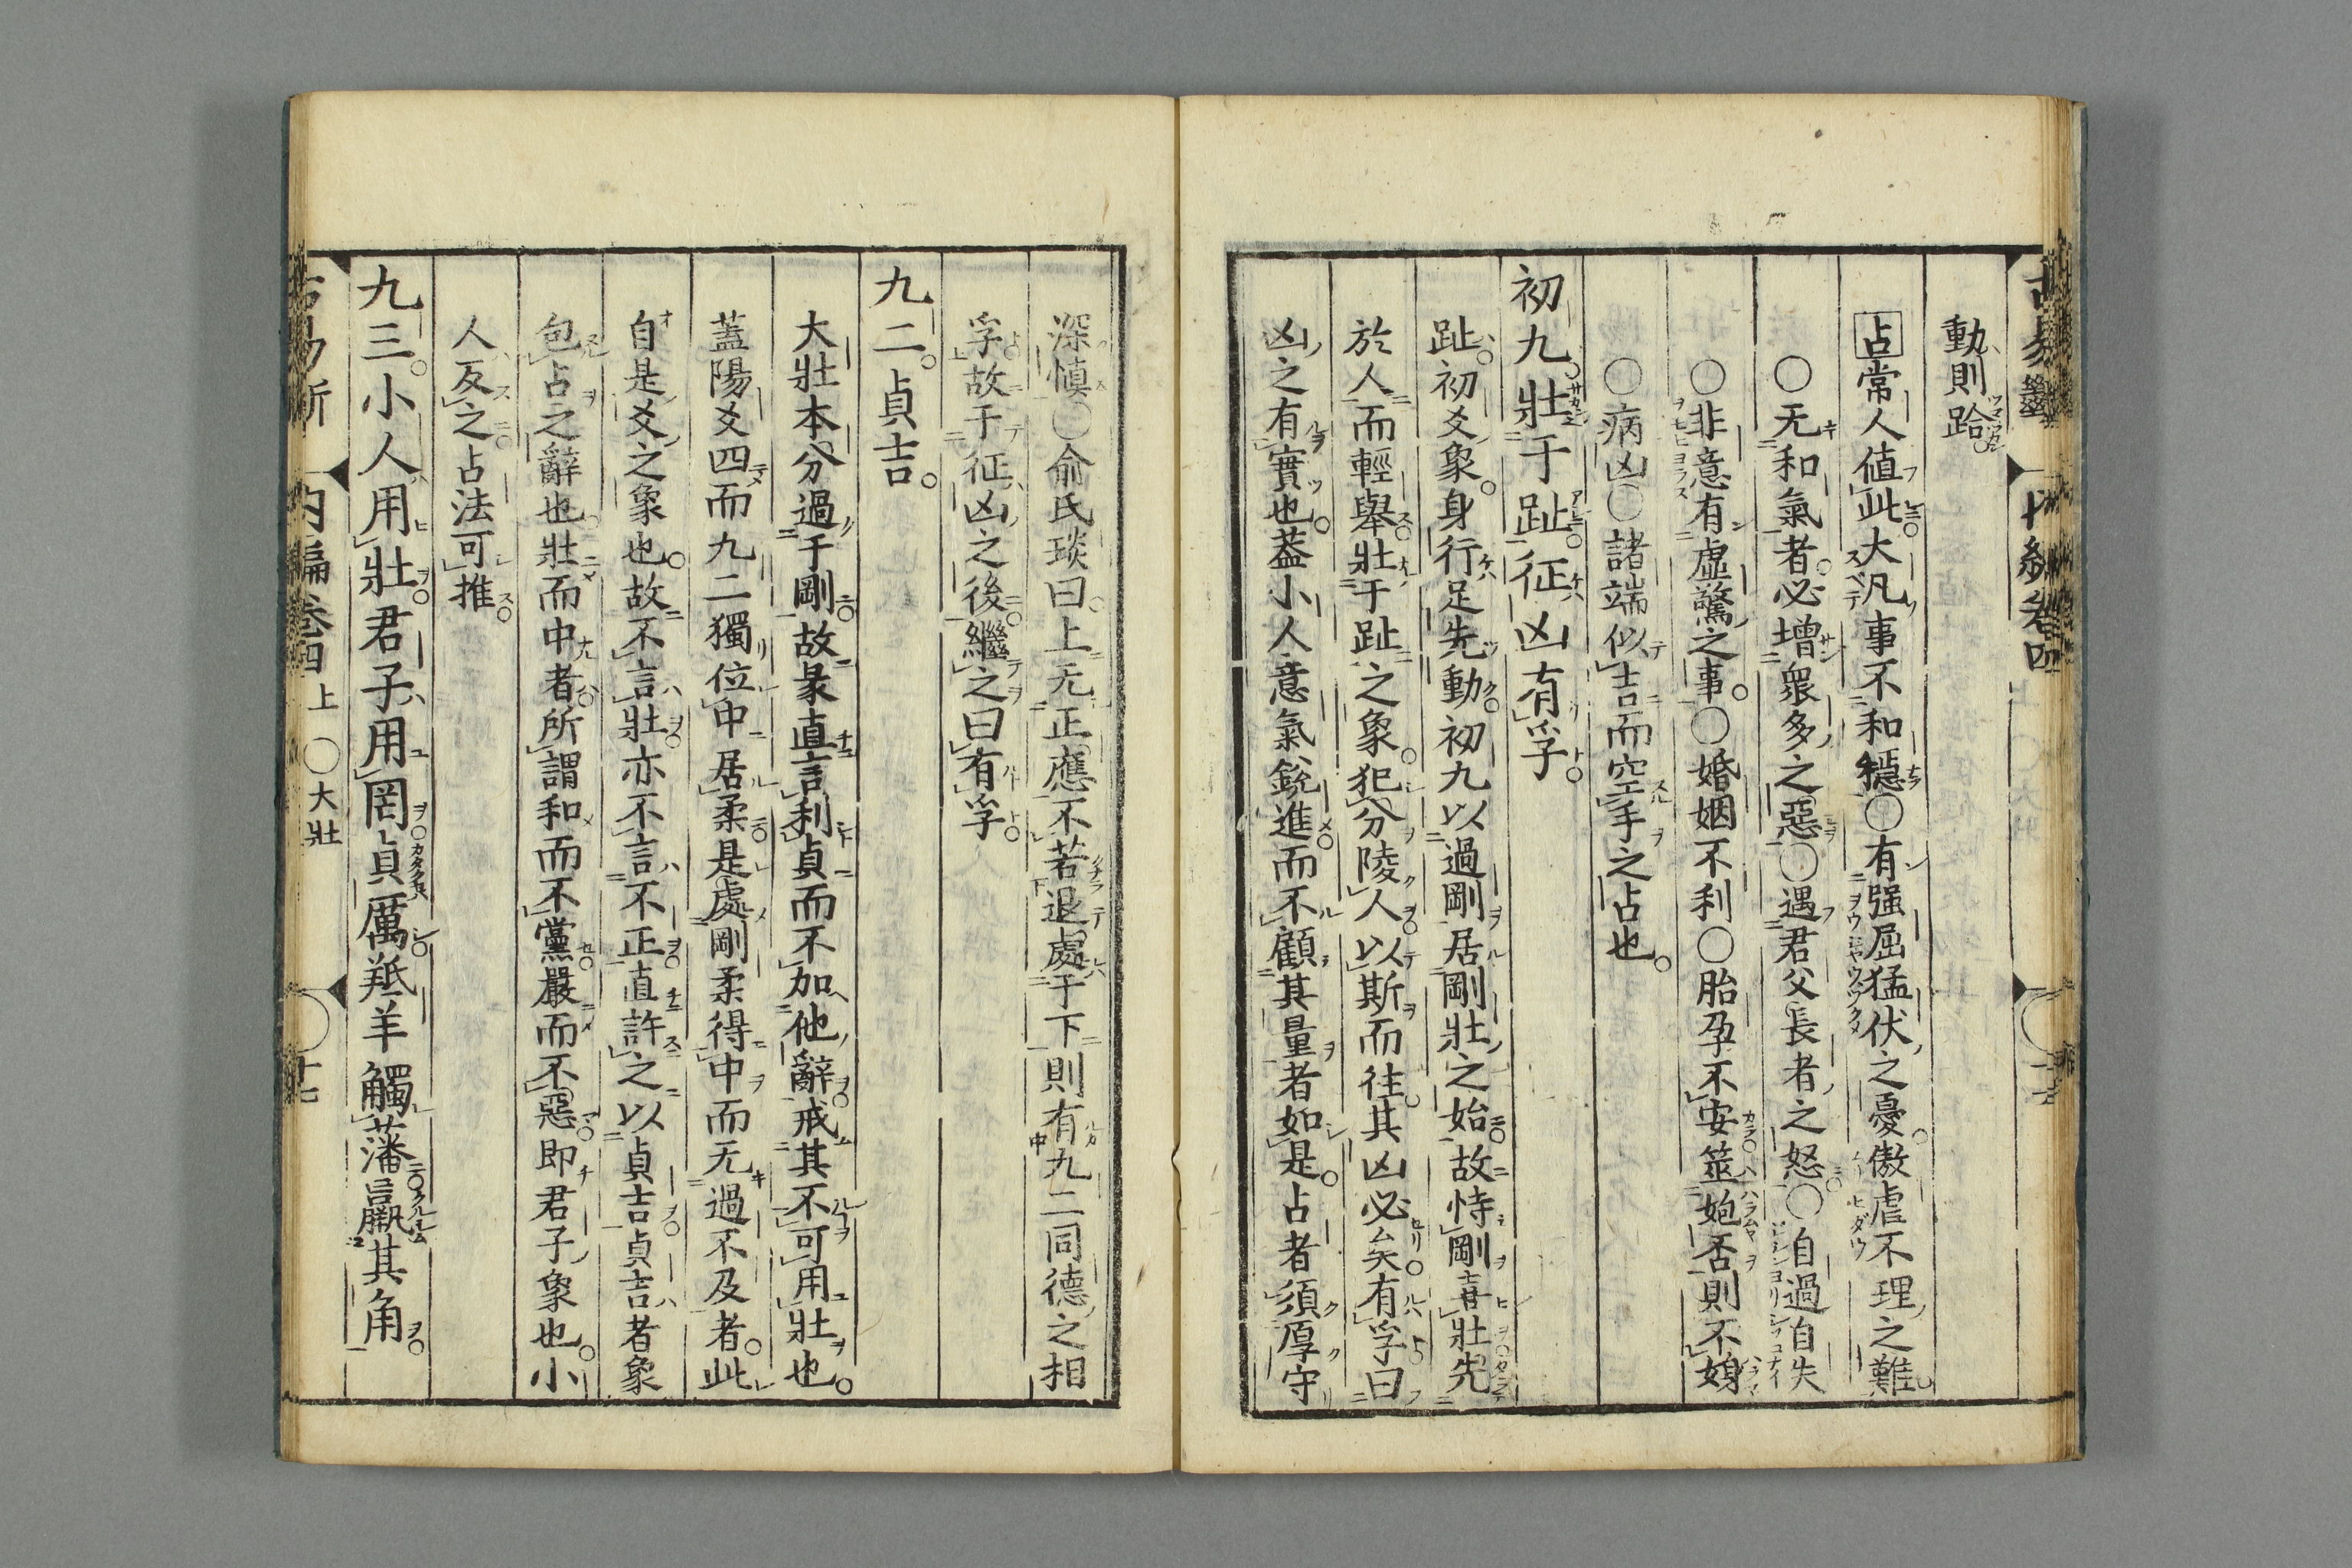 動則跲
占常人値此大凡事不和穩○有强屈猛伏之憂傲虐不理之難
○无和氣者必增眾多之惡○遇君父長者之怒○自過自失
○非意有虛驚之事○婚姻不利○胎孕不安筮娩否則不娩
○病凶○諸端似吉而空手之占也
初九壯于趾征凶有孚
趾初爻象身行足先動初九以過剛居剛壯之始故恃剛喜壯先
於人而輕舉壯于趾之象犯分陵人以斯而往其凶必矣有孚曰
凶之有實也蓋小人意氣銳進而不顧其量者如是占者須厚守
深愼○俞氏琰曰上无正應不若退處于下則有九二同德之相
孚故于征凶之後繼之曰有孚
九二貞吉
大壯本分過于剛故彖直言利貞而不加他辭戒其不可用壯也
蓋陽爻四而九二獨位中居柔是處剛柔得中而无過不及者此
自是爻之象也故不言壯亦不言不正直許之以貞吉貞吉者象
包占之辭也壯而中者所謂和而不黨嚴而不惡即君子象也小
人反之占法可推
九三小人用壯君子用罔貞厲羝羊觸藩羸其角
古易斷 內編卷四上 ○大壯 十七